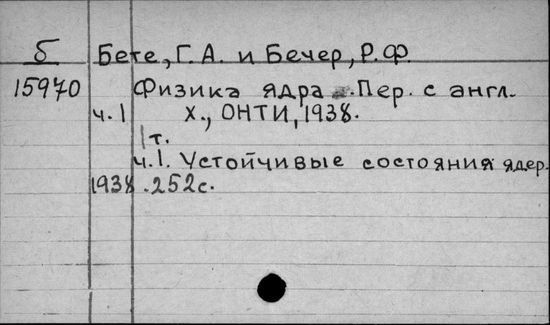 б Бете, Г. А. и Бечер, Р. Ф.
15970 Физика ядра. Пер. с англ.
ч. 1 Х., ОНТИ, 1938.
1 т.
ч. 1. Устойчивые состояния ядер.
1938. 252 с.